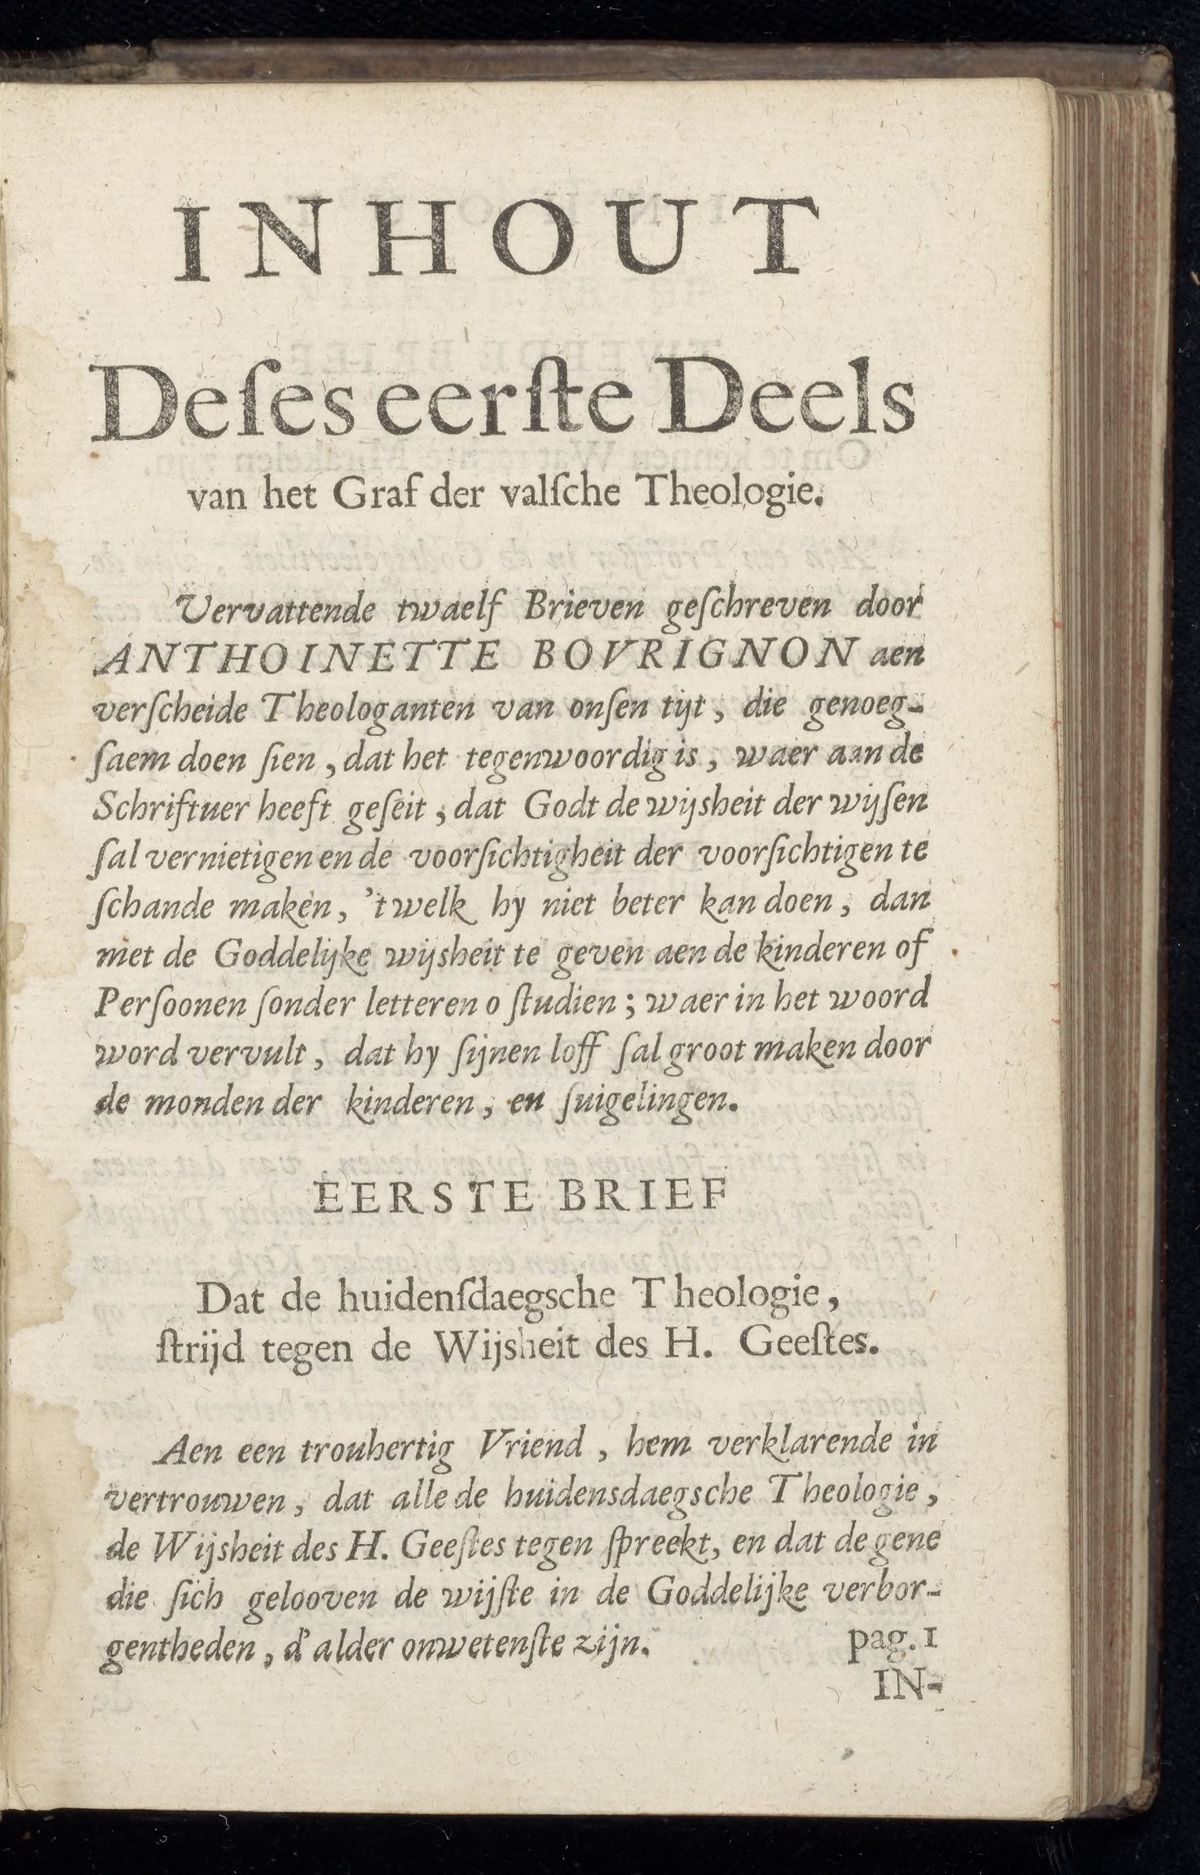 INHOUT
Deſes eerſte Deels
van het Graf der valſche Theologie.
Vervattende twaelf Brieven geſchreven door
ANTHOINETTE BOVRIGNON aen
verſcheide Theologanten van onſen tijt, die genoeg-
ſaem doen ſien, dat het tegenwoordig is, waer aan de
Schriftuer heeft geſeit, dat Godt de wijsheit der wijſen
ſal vernietigen en de voorſichtigheit der voorſichtigen te
ſchande maken, 't welk hy niet beter kan doen, dan
met de Goddelijke wijsheit te geven aen de kinderen of
Perſoonen ſonder letteren o ſtudien; waer in het woord
word vervult, dat hy ſijnen loff ſal groot maken door
de monden der kinderen, en ſuigelingen.
EERSTE BRIEF
Dat de huidenſdaegsche Theologie,
ſtrijd tegen de Wijsheit des H. Geeſtes.
Aen een trouhertig Vriend, hem verklarende in
vertrouwen, dat alle de huidensdaegsche Theologie,
de Wijsheit des H. Geeſtes tegen ſpreekt, en dat de gene
die ſich gelooven de wijſte in de Goddelijke verbor-
gentheden, d'alder onwetenſte zijn. pag. 1
IN-